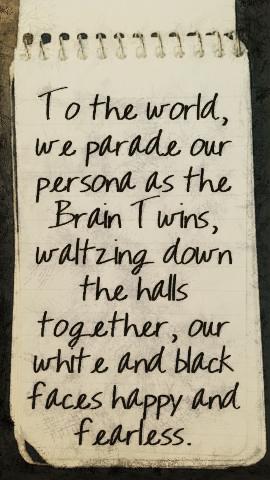 To the world,
we parade our
persona as the
Brain Twins,
waltzing down
the halls
together, our
white and black
faces happy and
fearless.